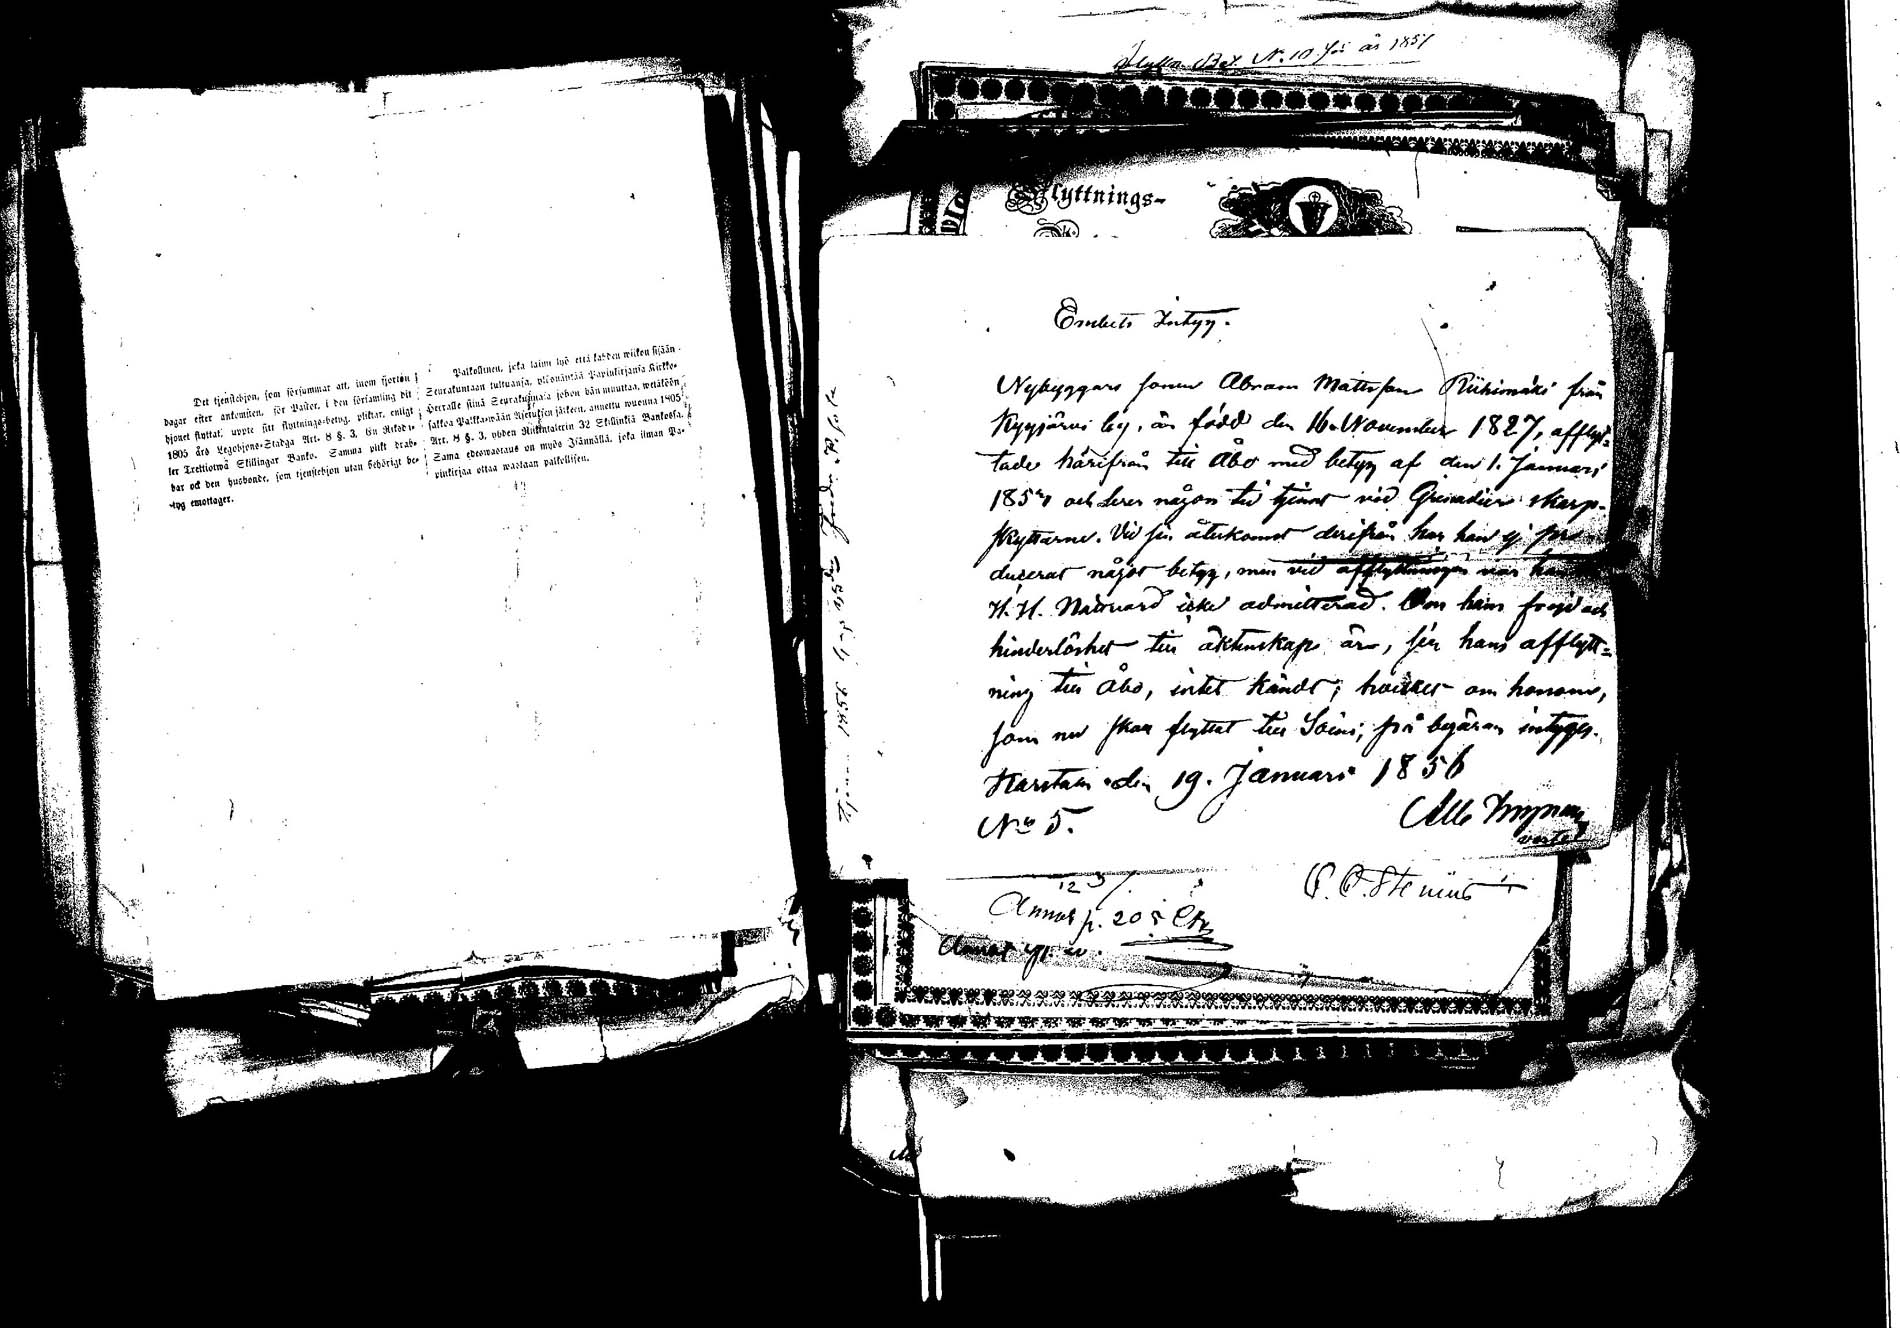 Det tjenstehjon, som försummar att, inom fjorton
dagar efter ankomsten, för Pastor, i den församling dit
hjonet flyttat, uppte sitt flyttnings-betyg, pliktar, enligt
1805 års Legohjons-Stadga Art. 8 §. 3. En Riksda-
ler Trettiotwå Skillingar Banko. Samma plikt drab-
bar ock den husbonde, som tjenstehjon utan behörigt be-
tyg emottager.
Palkollinen, joka laimi lyö että kahden wiikon sisään
Seurakuntaan tultuansa, ylösnäyttää Papinkirjansa Kirkko-
Herralle siinä Seurakunnasa johon hän muuttaa, wetäköön
sakkoa Palkkawäen Asetuksen jälkeen, annettu wuonna 1805
Art. 8 §. 3, yhden Riikintalerin 32 Skillinkiä Bankossa.
Sama edeswastaus on myös Isännällä, joka ilman Pa-
pinkirjaa ottaa wastaan palkollisen.
Flytt. Bet. N. 10 för år 1857
Flyttnings-
Embets Intyg.
Nybyggare sonen Abram Mattsson Riihimäki från
Kyyjärvi by, är född den 16 November 1827, afflyt-
tade härifrån till Åbo med betyg af den 1. Januari
185 och derer någon tid tjenat vid Grenadier skarp-
skyttarne. Vid sin återkomst derifrån har han ej pro
ducerat något betyg, men vid afflyttningen var han
H. H. Nattvard icke admitterad. Om hans frejd och
hinderlöshet till äktenskap är, sen hans afflytt-
ning till Åbo, intet kändt; hvilket om honom,
som nu skall flyttat till Soini, på begäran intygas.
Karstula den 19. Januari 1856
No 5.
verte
1856
C. Stenius
Annot p. 205
Annot